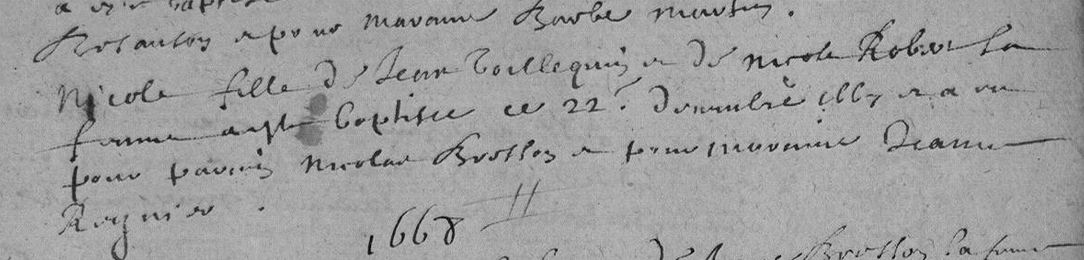 a esté baptisé
et pour maraine Barbe martin.
Nicole fille de Jean et de nicole Robert sa
femme a esté baptisee ce 22e decembre 1667 et a eu
pour parain Nicolas Brosson et pour maraine Jeanne
Regnier.
1668
Brosson sa femme